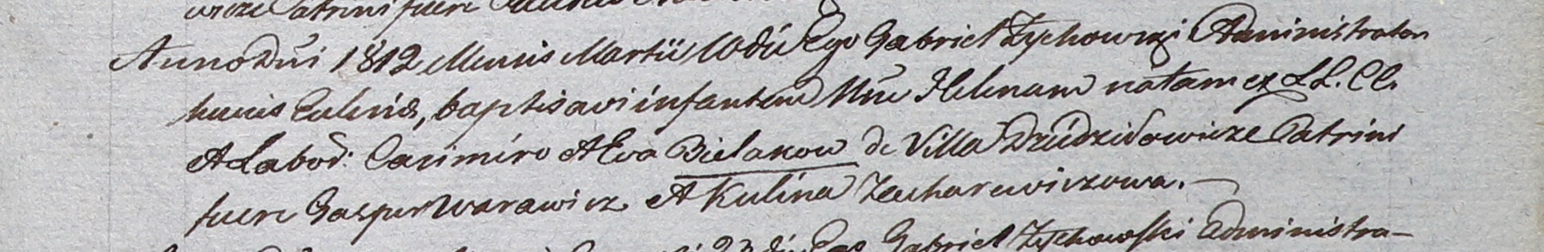 Patrini fuere
Anno Dni 1812 Mensis Martii 10 die Ego Gabriel Zychowski Administrator
huius Ecclesiæ, baptisavi infantem Nne Helenam natam ex LL. CC.
A Labod: Casimiro A Eva Bielakow de Villa Dzidzidowicze Patrini
fuere Gaspar Warawicz A Kulina Zacharewiczowa.
23 die Ego Gabriel Zychowski Administra-